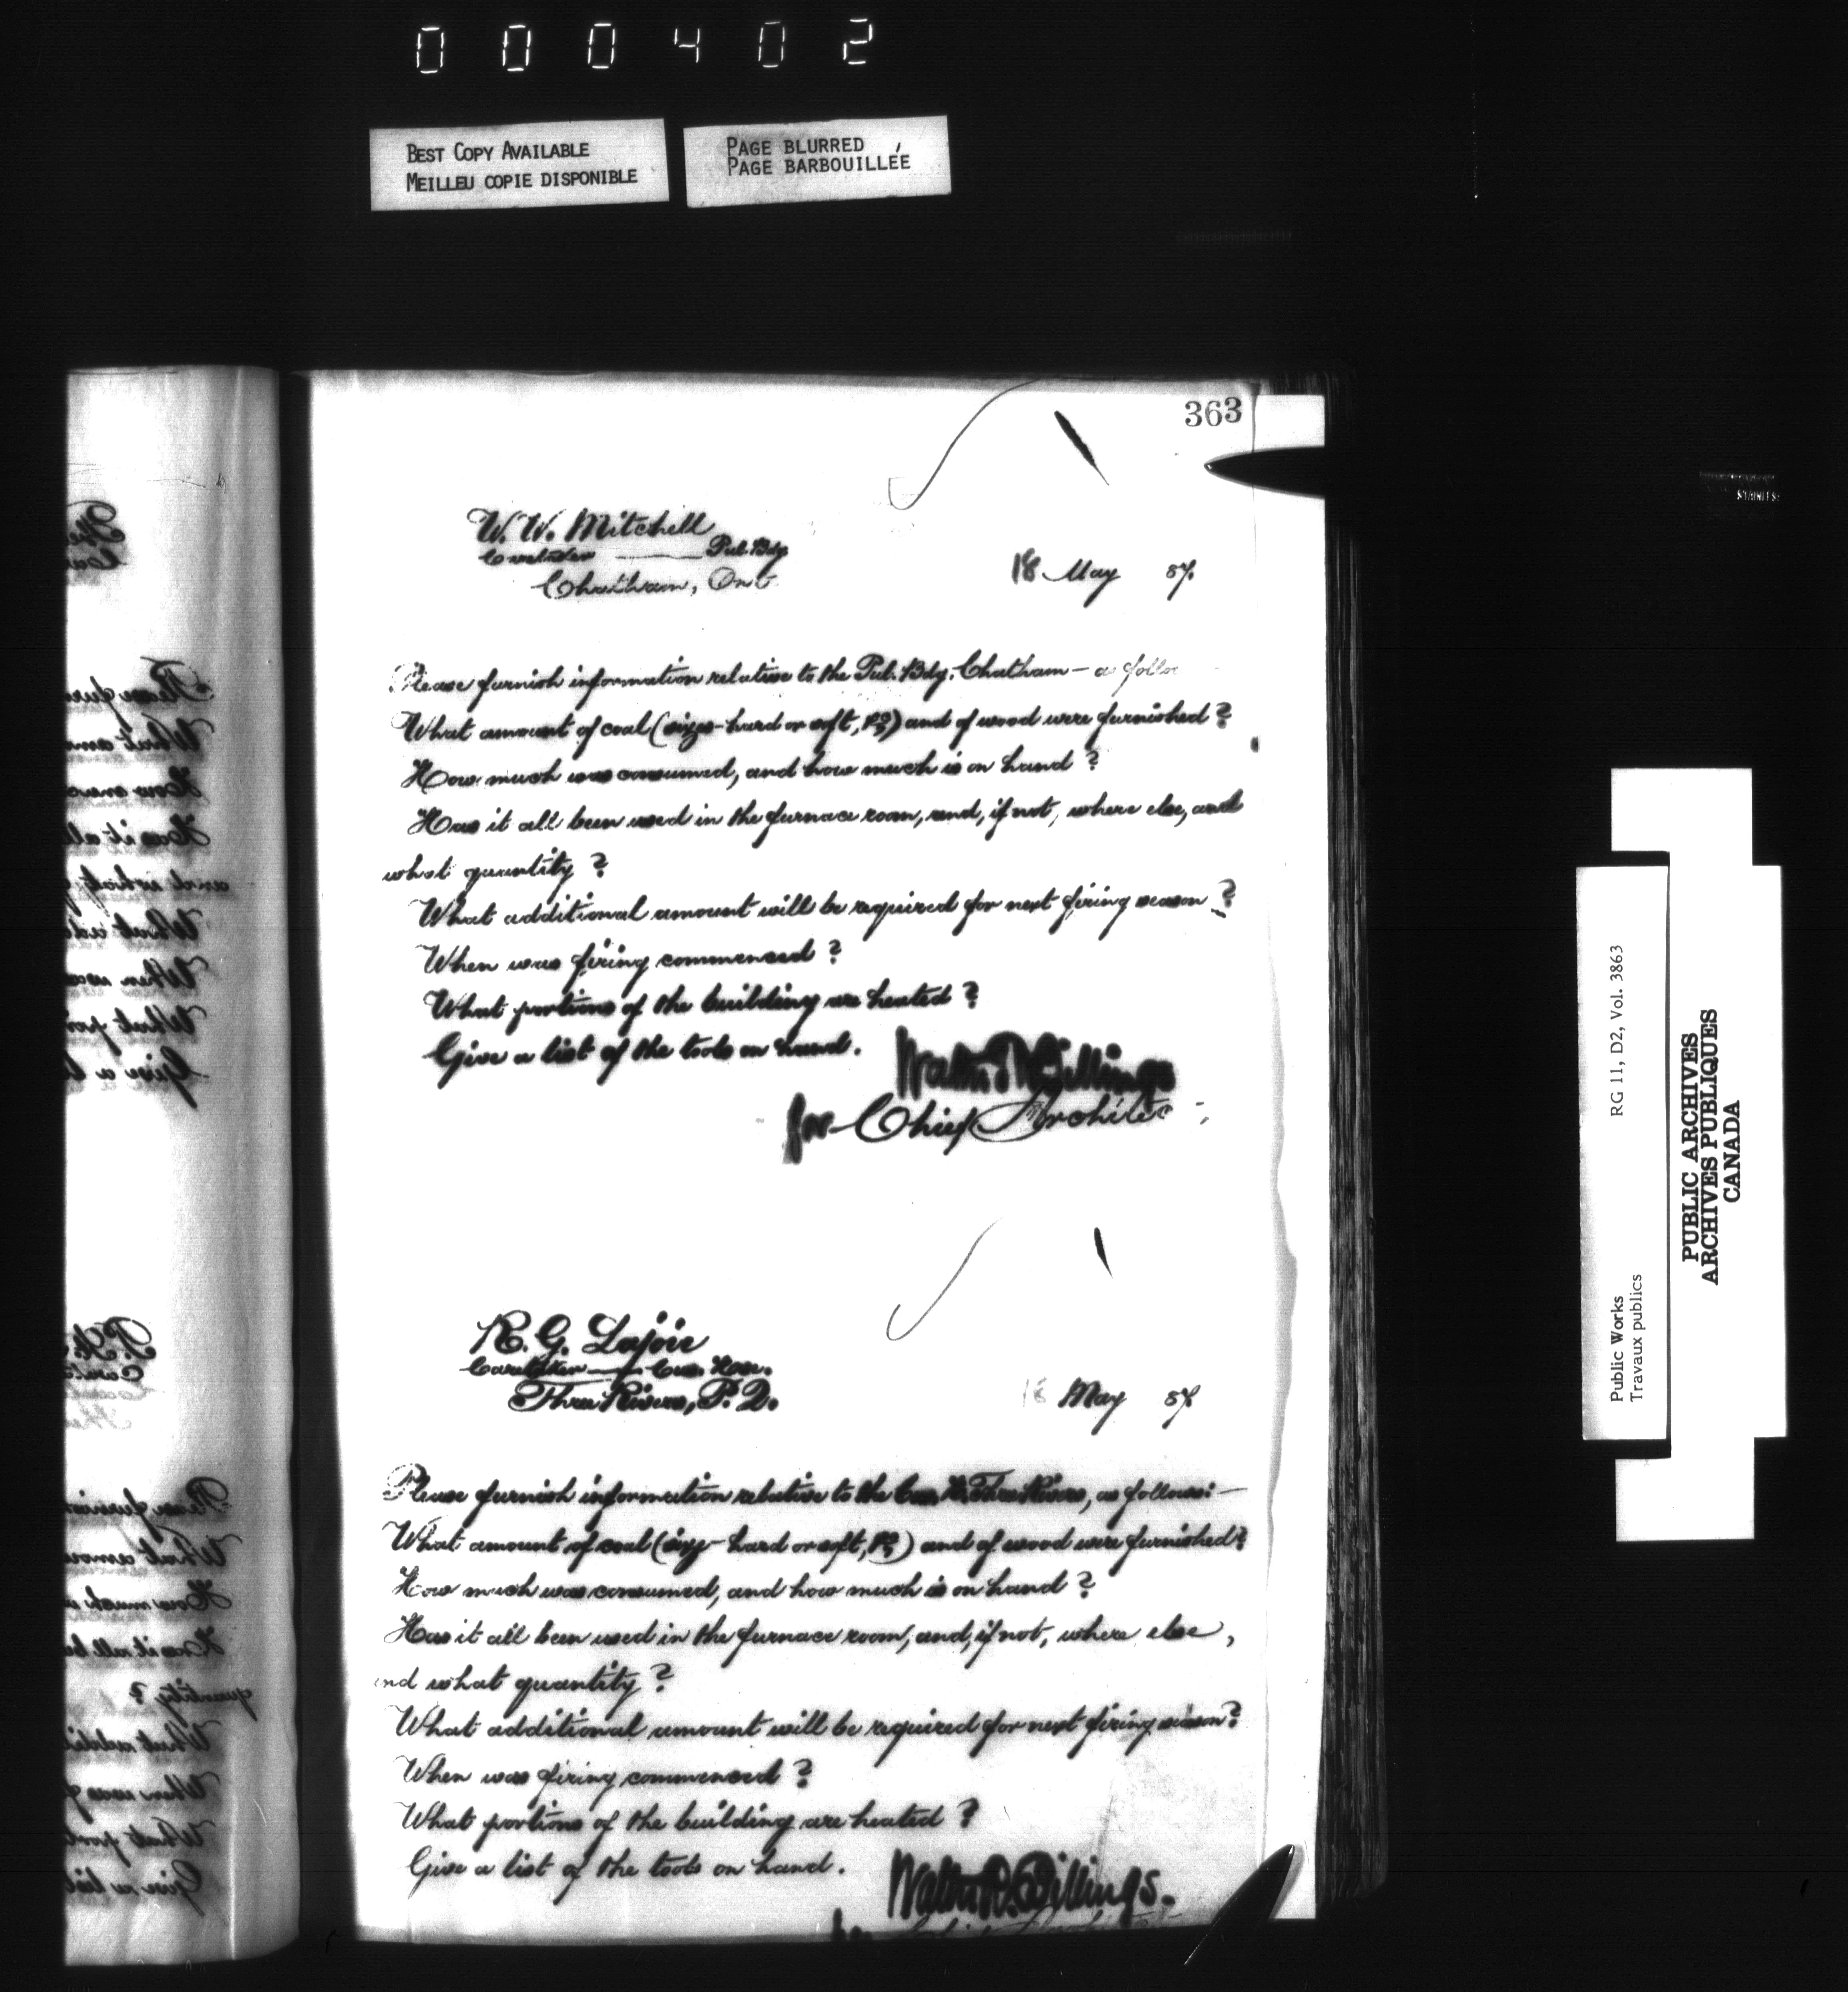 000402
BEST COPY AVAILABLE
MEILLEU COPIE DISPONIBLE
PAGE BLURRED
PAGE BARBOUILLÉE
363
W. W. Mitchell
Caretaker — Pub. Bdg
Chatham, Ont
18 May 87.
Please furnish information relative to the Pub. Bdg. Chatham — a follo
What amount of coal (size - hard or soft, &c) and of wood were furnished?
How much was consumed, and how much is on hand?
Has it all been used in the furnace room, and, if not, where else, and
what quantity?
What additional amount will be required for next firing season?
When was firing commenced?
What portions of the building are heated?
Give a list of the tools on hand.
Walter R. Billings
for Chief Architec
R. G. Lajoie
Caretaker — Cus. Hou.
Three Rivers, P. Q.
18 May 87
Please furnish information relative to the Cus. H. Three Rivers, as follows: —
What amount of coal (size - hard or soft, &c) and of wood were furnished?
How much was consumed, and how much is on hand?
Has it all been used in the furnace room, and, if not, where else,
nd what quantity?
What additional amount will be required for next firing season?
When was firing commenced?
What portions of the building are heated?
Give a list of the tools on hand.
Walter R. Billings.
Public Works
Travaux publics
RG 11, D2, Vol. 3863
PUBLIC ARCHIVES
ARCHIVES PUBLIQUES
CANADA